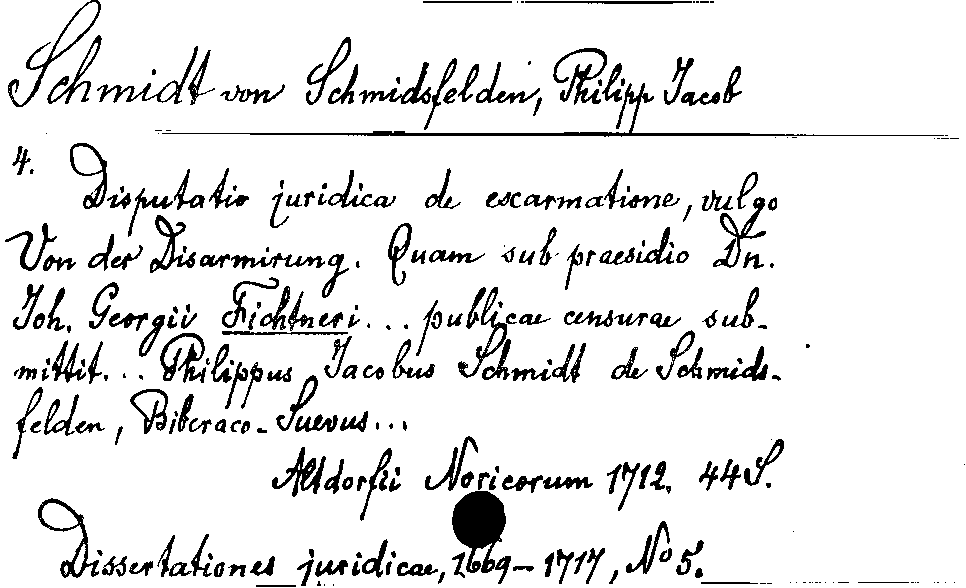 Schmidt von Schmidsfelden, Philipp Jacob
4.
Disputatio juridica de escarmatione, vulgo
Von der Disarmirung. Quam sub praesidio Dn.
Joh. Georgii Fichtneri... publicae censurae sub-
mittit... Philippus Jacobus Schmidt de Schmids-
felden, Biberaco-Suevus...
Altdorfii Noricorum 1712. 44 S.
Dissertationes juridicae, 1669-1717, No 5.